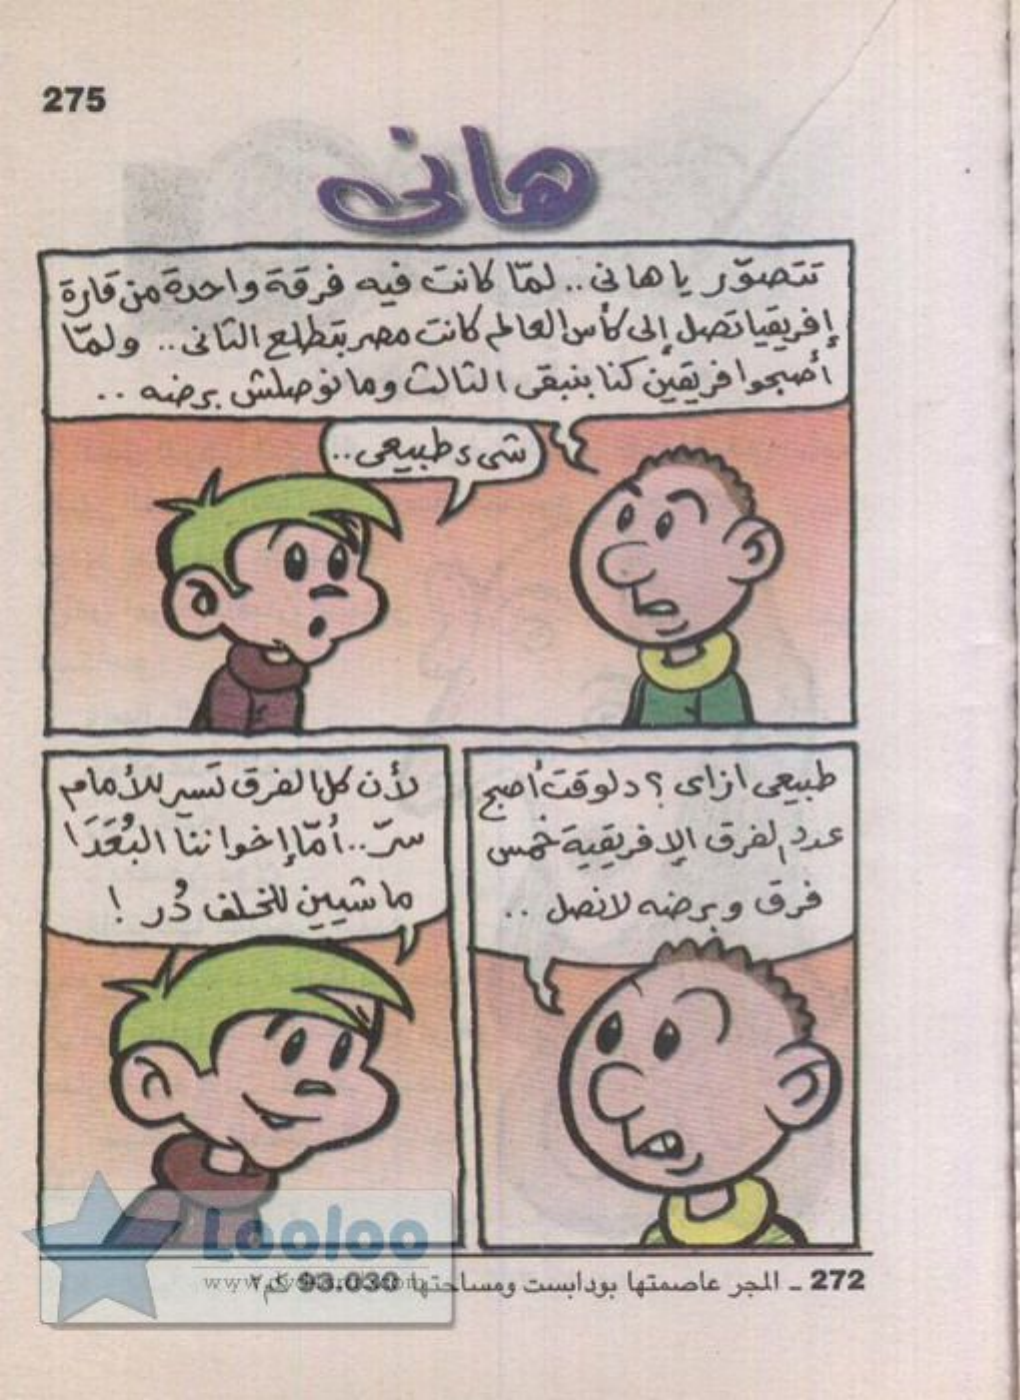 275
هانى
تتصوّر يا هانى.. لمّا كانت فيه فرقة واحدة من قارة
إفريقيا تصل إلى كأس العالم كانت مصر بتطلع التانى.. ولمّا
أصبحوا فريقين كنا بنبقى التالت وما نوصلش برضه ..
شىء طبيعى..
طبيعى ازاى ؟ دلوقت أصبح
عدد الفرق الإفريقية خمس
فرق وبرضه لا نصل ..
لأن كل الفرق تسير للأمام
سرّ.. أمّا إخواننا البُعَدَا
ماشيين للخلف دُر !
Looloo
272 ـ المجر عاصمتها بودابست ومساحتها 93.030 كم٢